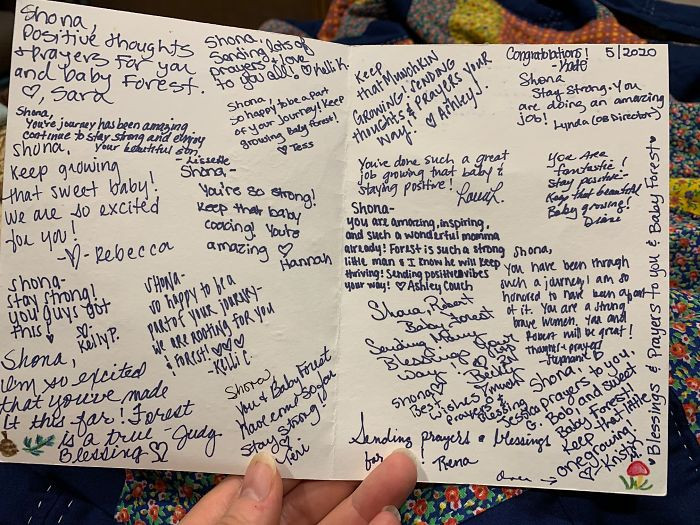 Shona,
Positive thoughts
& prayers for you
and baby Forest.
♡, Sara
Shona,
Sending lots of
prayers & love
to you all! ♡Kelli K.
Shona,
So happy to be a part
of your journey! Keep
growing Baby Forest!
♡ Tess
Shona,
You're journey has been amazing
continue to stay strong and enjoy
your beautiful son
- Lissette
Shona,
Keep growing
that sweet baby!
We are so excited
for you!
♡- Rebecca
Shona,-
You're so strong!
Keep that baby
coocing! You're
amazing ♡
Hannah
Shona-
stay strong!
you guys got
this! ♡-
Kelly P.
Shona-
so happy to be a
part of your journey-
we are rooting for you
& Forest! ♡♡♡
- Kelli C.
Shona,
I'm so excited
that you've made
it this far! Forest
is a true - Judy
Blessing ♡
Shona,
You & Baby Forest
Have come so far
Stay strong!
♡ Teri
Keep
that munchkin
growing! Sending
thoughts & prayers your
way. ♡ Ashley J.
Congratulations! 5/2020
- Kate
Shona
Stay Strong. You
are doing an amazing
job!
Lynda (OB Director)
You've done such a great
job growing that baby &
staying positive!
Laura L.
You Are
fantastic!
Stay positive-
Keep that beautiful
Baby growing!
Diane
Shona-
you are amazing, inspiring,
and such a wonderful momma
already! Forest is such a strong
little man & I know he will keep
thriving! Sending positive vibes
your way! ♡ Ashley Couch
Shona,
You have been through
such a journey, I am so
honored to have been a part
of it. You are a strong
brave women. You and
Robert will be great!
Thoughts & prayers
- Stephanie D
Shona, Robert
Baby Forest
Sending Many
Blessings Your
Way!
Becky RN
Shona
Best Wishes & much
Prayers &
Blessing
Jessica
G.
Shona,
prayers to you,
Bob, and sweet
Baby Forest!
Keep that little
one growing!
♡ Kristy
Sending prayers & blessings
for
Rena
over →
♥Blessings & Prayers to you & Baby Forest♥